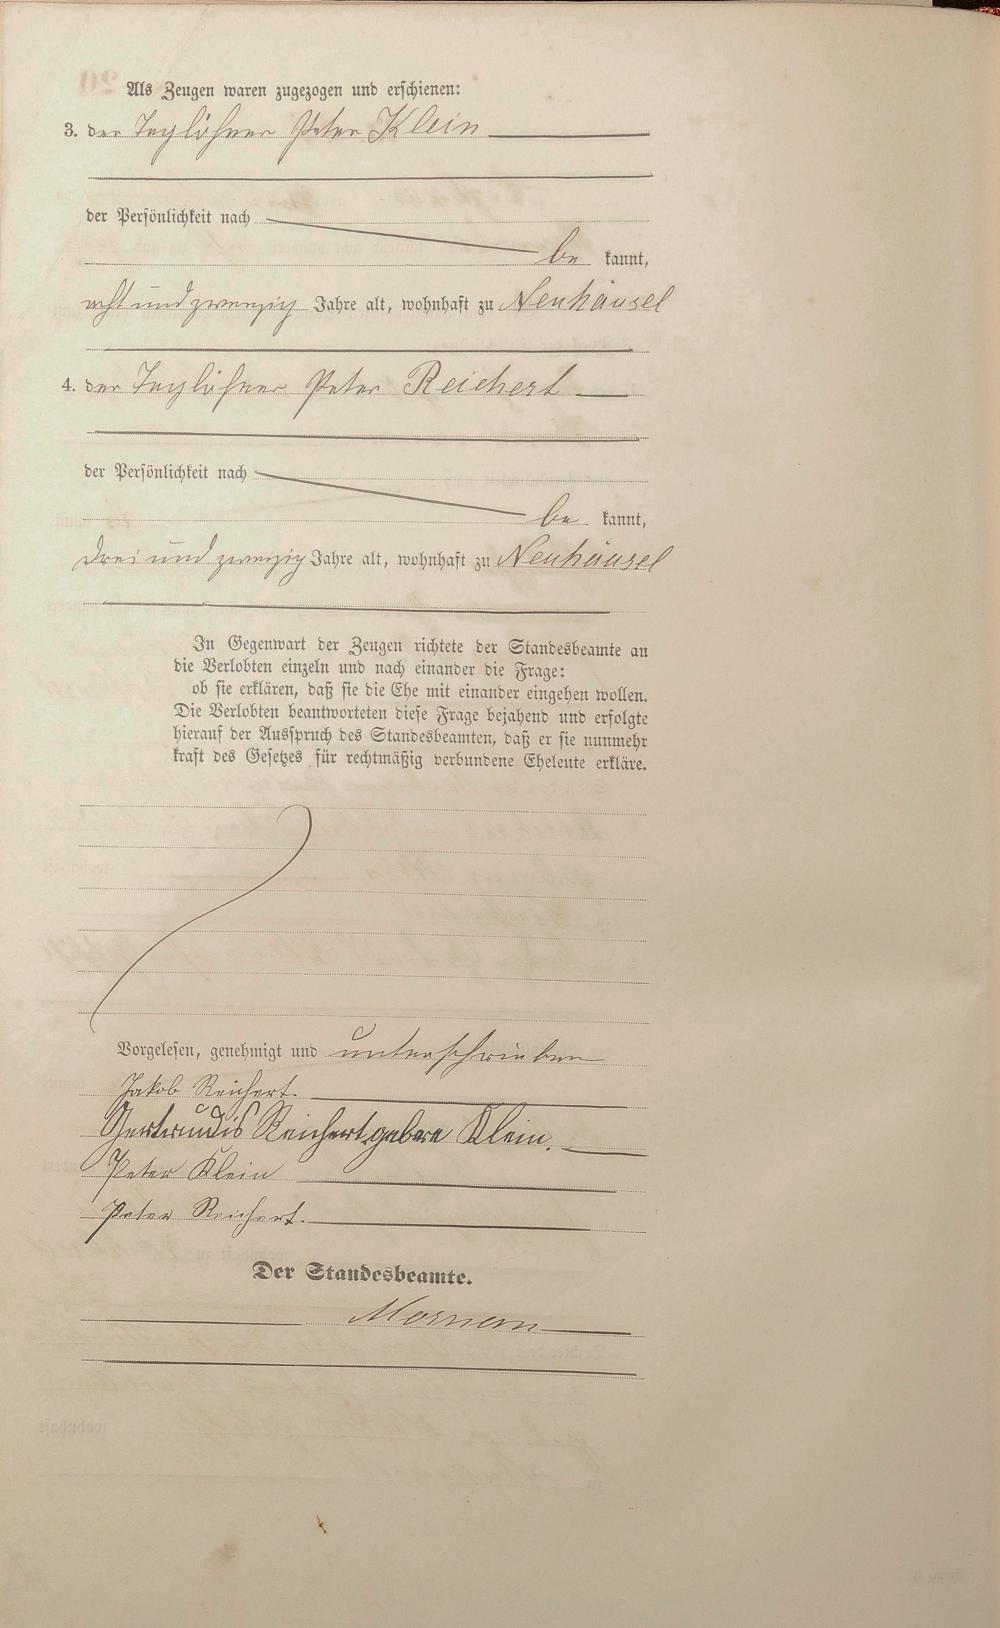 Als Zeugen waren zugezogen und erschienen:
3. der Taglöhner Peter Klein
der Persönlichkeit nach
be kannt,
acht und zwanzig Jahre alt, wohnhaft zu Neuhäusel
4. der Taglöhner Peter Reichert
der Persönlichkeit nach
be kannt,
drei und zwanzig Jahre alt, wohnhaft zu Neuhäusel
In Gegenwart der Zeugen richtete der Standesbeamte an
die Verlobten einzeln und nach einander die Frage:
ob sie erklären, daß sie die Ehe mit einander eingehen wollen.
Die Verlobten beantworteten diese Frage bejahend und erfolgte
hierauf der Ausspruch des Standesbeamten, daß er sie nunmehr
kraft des Gesetzes für rechtmäßig verbundene Eheleute erkläre.
Vorgelesen, genehmigt und unterschrieben
Jakob Reichert.
Gertrudis Reichert gebore Klein.
Peter Klein
Peter Reichert.
Der Standesbeamte.